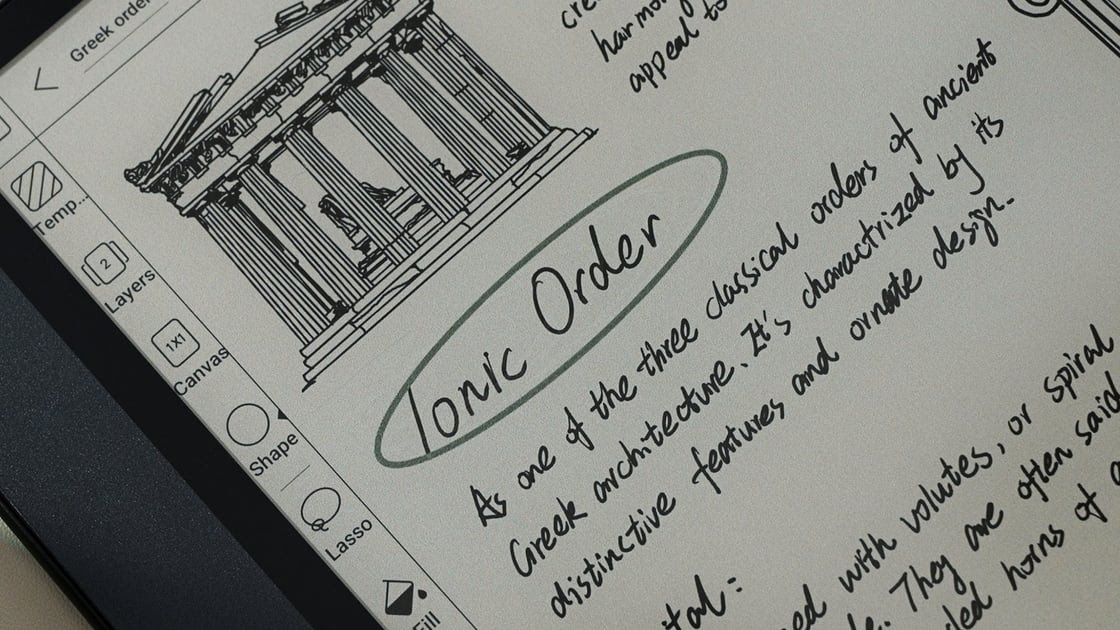 Greek order
cre
harmon
appeal to
Temp...
2
Layers
1X1
Canvas
Shape
Lasso
Fill
Ionic Order
As one of the three classical orders of ancient
Greek architecture. It's charactrized by its
distinctive features and ornate design.
tal:
ned with volutes, or spiral
They are often said
led horns of a